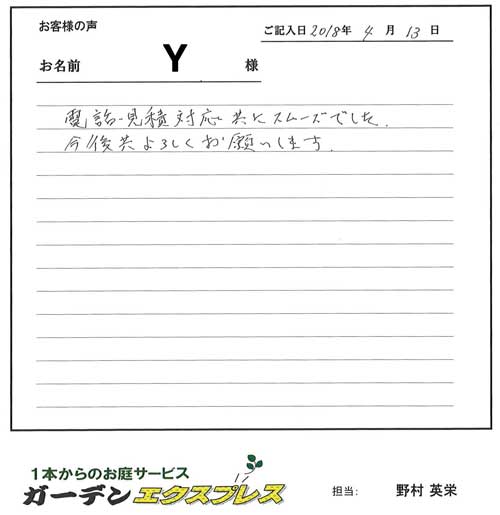 お客様の声
ご記入日 2018年 4月 13日
お名前 Y 様
電話・見積対応共にスムーズでした.
今後共よろしくお願いします.
1本からのお庭サービス
ガーデンエクスプレス
担当: 野村 英栄